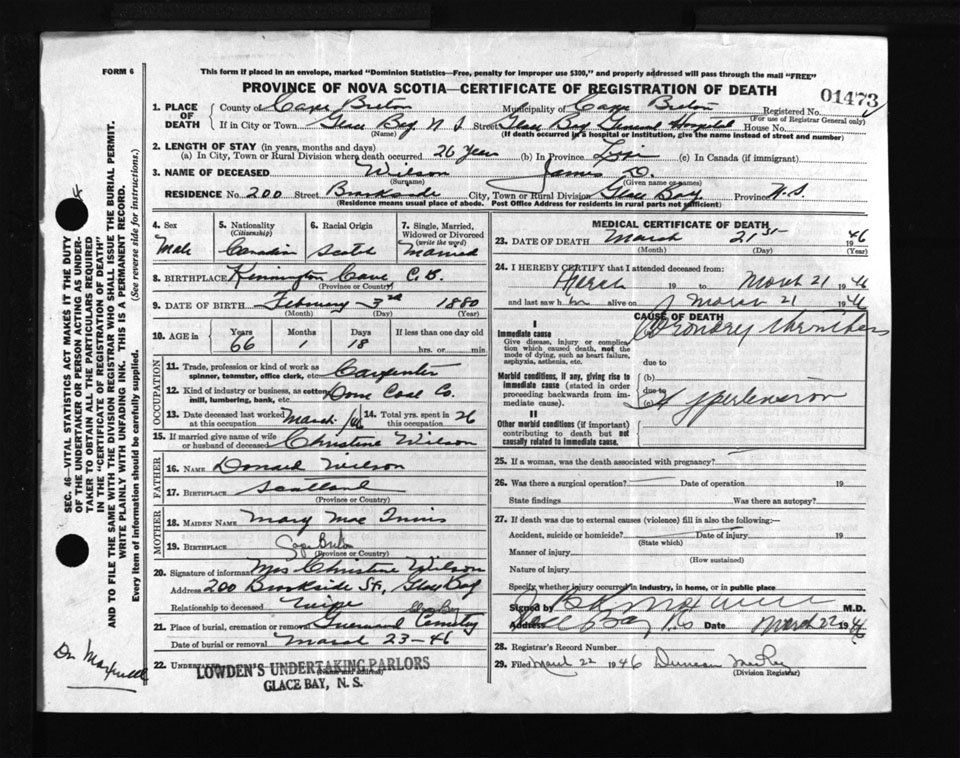 FORM 6
This form if placed in an envelope, marked "Dominion Statistics—Free, penalty for improper use $300," and properly addressed will pass through the mail "FREE"
PROVINCE OF NOVA SCOTIA—CERTIFICATE OF REGISTRATION OF DEATH
01473
1. PLACE OF DEATH County of Cape Breton Municipality of Cape Breton Registered No.
(For use of Registrar General only)
If in City or Town Glace Bay N S Street Glace Bay General Hospital House No.
(Name) (If death occurred in a hospital or institution, give the name instead of street and number)
2. LENGTH OF STAY (in years, months and days)
(a) In City, Town or Rural Division where death occurred 26 Years (b) In Province Life (c) In Canada (if immigrant)
3. NAME OF DECEASED Wilson James D.
(Surname) (Given name or names)
RESIDENCE No. 200 Street Brookside City, Town or Rural Division Glace Bay Province N.S.
(Residence means usual place of abode. Post Office Address for residents in rural parts not sufficient)
4. Sex Male
5. Nationality (Citizenship) Canadian
6. Racial Origin Scotch
7. Single, Married, Widowed or Divorced (write the word) Married
8. BIRTHPLACE Kennington Cove C.B.
(Province or Country)
9. DATE OF BIRTH February 3rd 1880
(Month) (Day) (Year)
10. AGE in Years Months Days If less than one day old
66 1 18 hrs. or min.
OCCUPATION
11. Trade, profession or kind of work as spinner, teamster, office clerk, etc. Carpenter
12. Kind of industry or business, as cotton mill, lumbering, bank, etc. Dom Coal Co.
13. Date deceased last worked at this occupation March /46 14. Total yrs. spent in 26
15. If married give name of wife or husband of deceased Christine Wilson
FATHER
16. NAME Donald Wilson
17. BIRTHPLACE Scotland
(Province or Country)
MOTHER
18. MAIDEN NAME Mary Mac Innis
19. BIRTHPLACE Cape Breton
(Province or Country)
20. Signature of informant Mrs Christine Wilson
Address 200 Brookside St, Glace Bay
Relationship to deceased Wife
21. Place of burial, cremation or removal Greenwood Cemetry Glace Bay
Date of burial or removal March 23-46
22. UNDERTAKER LOWDEN'S UNDERTAKING PARLORS
(Name and address)
GLACE BAY, N. S.
MEDICAL CERTIFICATE OF DEATH
23. DATE OF DEATH March 21st 1946
(Month) (Day) (Year)
24. I HEREBY CERTIFY that I attended deceased from:
March 19 to March 21 1946
and last saw him alive on March 21 1946
CAUSE OF DEATH
I
Immediate cause Coronary thrombosis
Give disease, injury or complication which caused death, not the mode of dying, such as heart failure, asphyxia, asthenia, etc.
due to
Morbid conditions, if any, giving rise to immediate cause (stated in order proceeding backwards from immediate cause).
(b)
due to
(c) Hypertension
II
Other morbid conditions (if important) contributing to death but not causally related to immediate cause.
25. If a woman, was the death associated with pregnancy?
26. Was there a surgical operation? Date of operation 19
State findings Was there an autopsy?
27. If death was due to external causes (violence) fill in also the following:—
Accident, suicide or homicide? Date of injury 19
(State which)
Manner of injury
(How sustained)
Nature of injury
Specify whether injury occurred in industry, in home, or in public place
Signed by M.D.
Address Glace Bay N.S. Date March 22 1946
28. Registrar's Record Number
29. Filed March 22 1946 Duncan
(Division Registrar)
SEC. 46—VITAL STATISTICS ACT MAKES IT THE DUTY
OF THE UNDERTAKER OR PERSON ACTING AS UNDERTAKER TO OBTAIN ALL THE PARTICULARS REQUIRED
IN THE "CERTIFICATE OF REGISTRATION OF DEATH"
AND TO FILE THE SAME WITH THE DIVISION REGISTRAR WHO SHALL ISSUE THE BURIAL PERMIT.
WRITE PLAINLY WITH UNFADING INK. THIS IS A PERMANENT RECORD.
Every item of information should be carefully supplied. (See reverse side for instructions.)
Dr